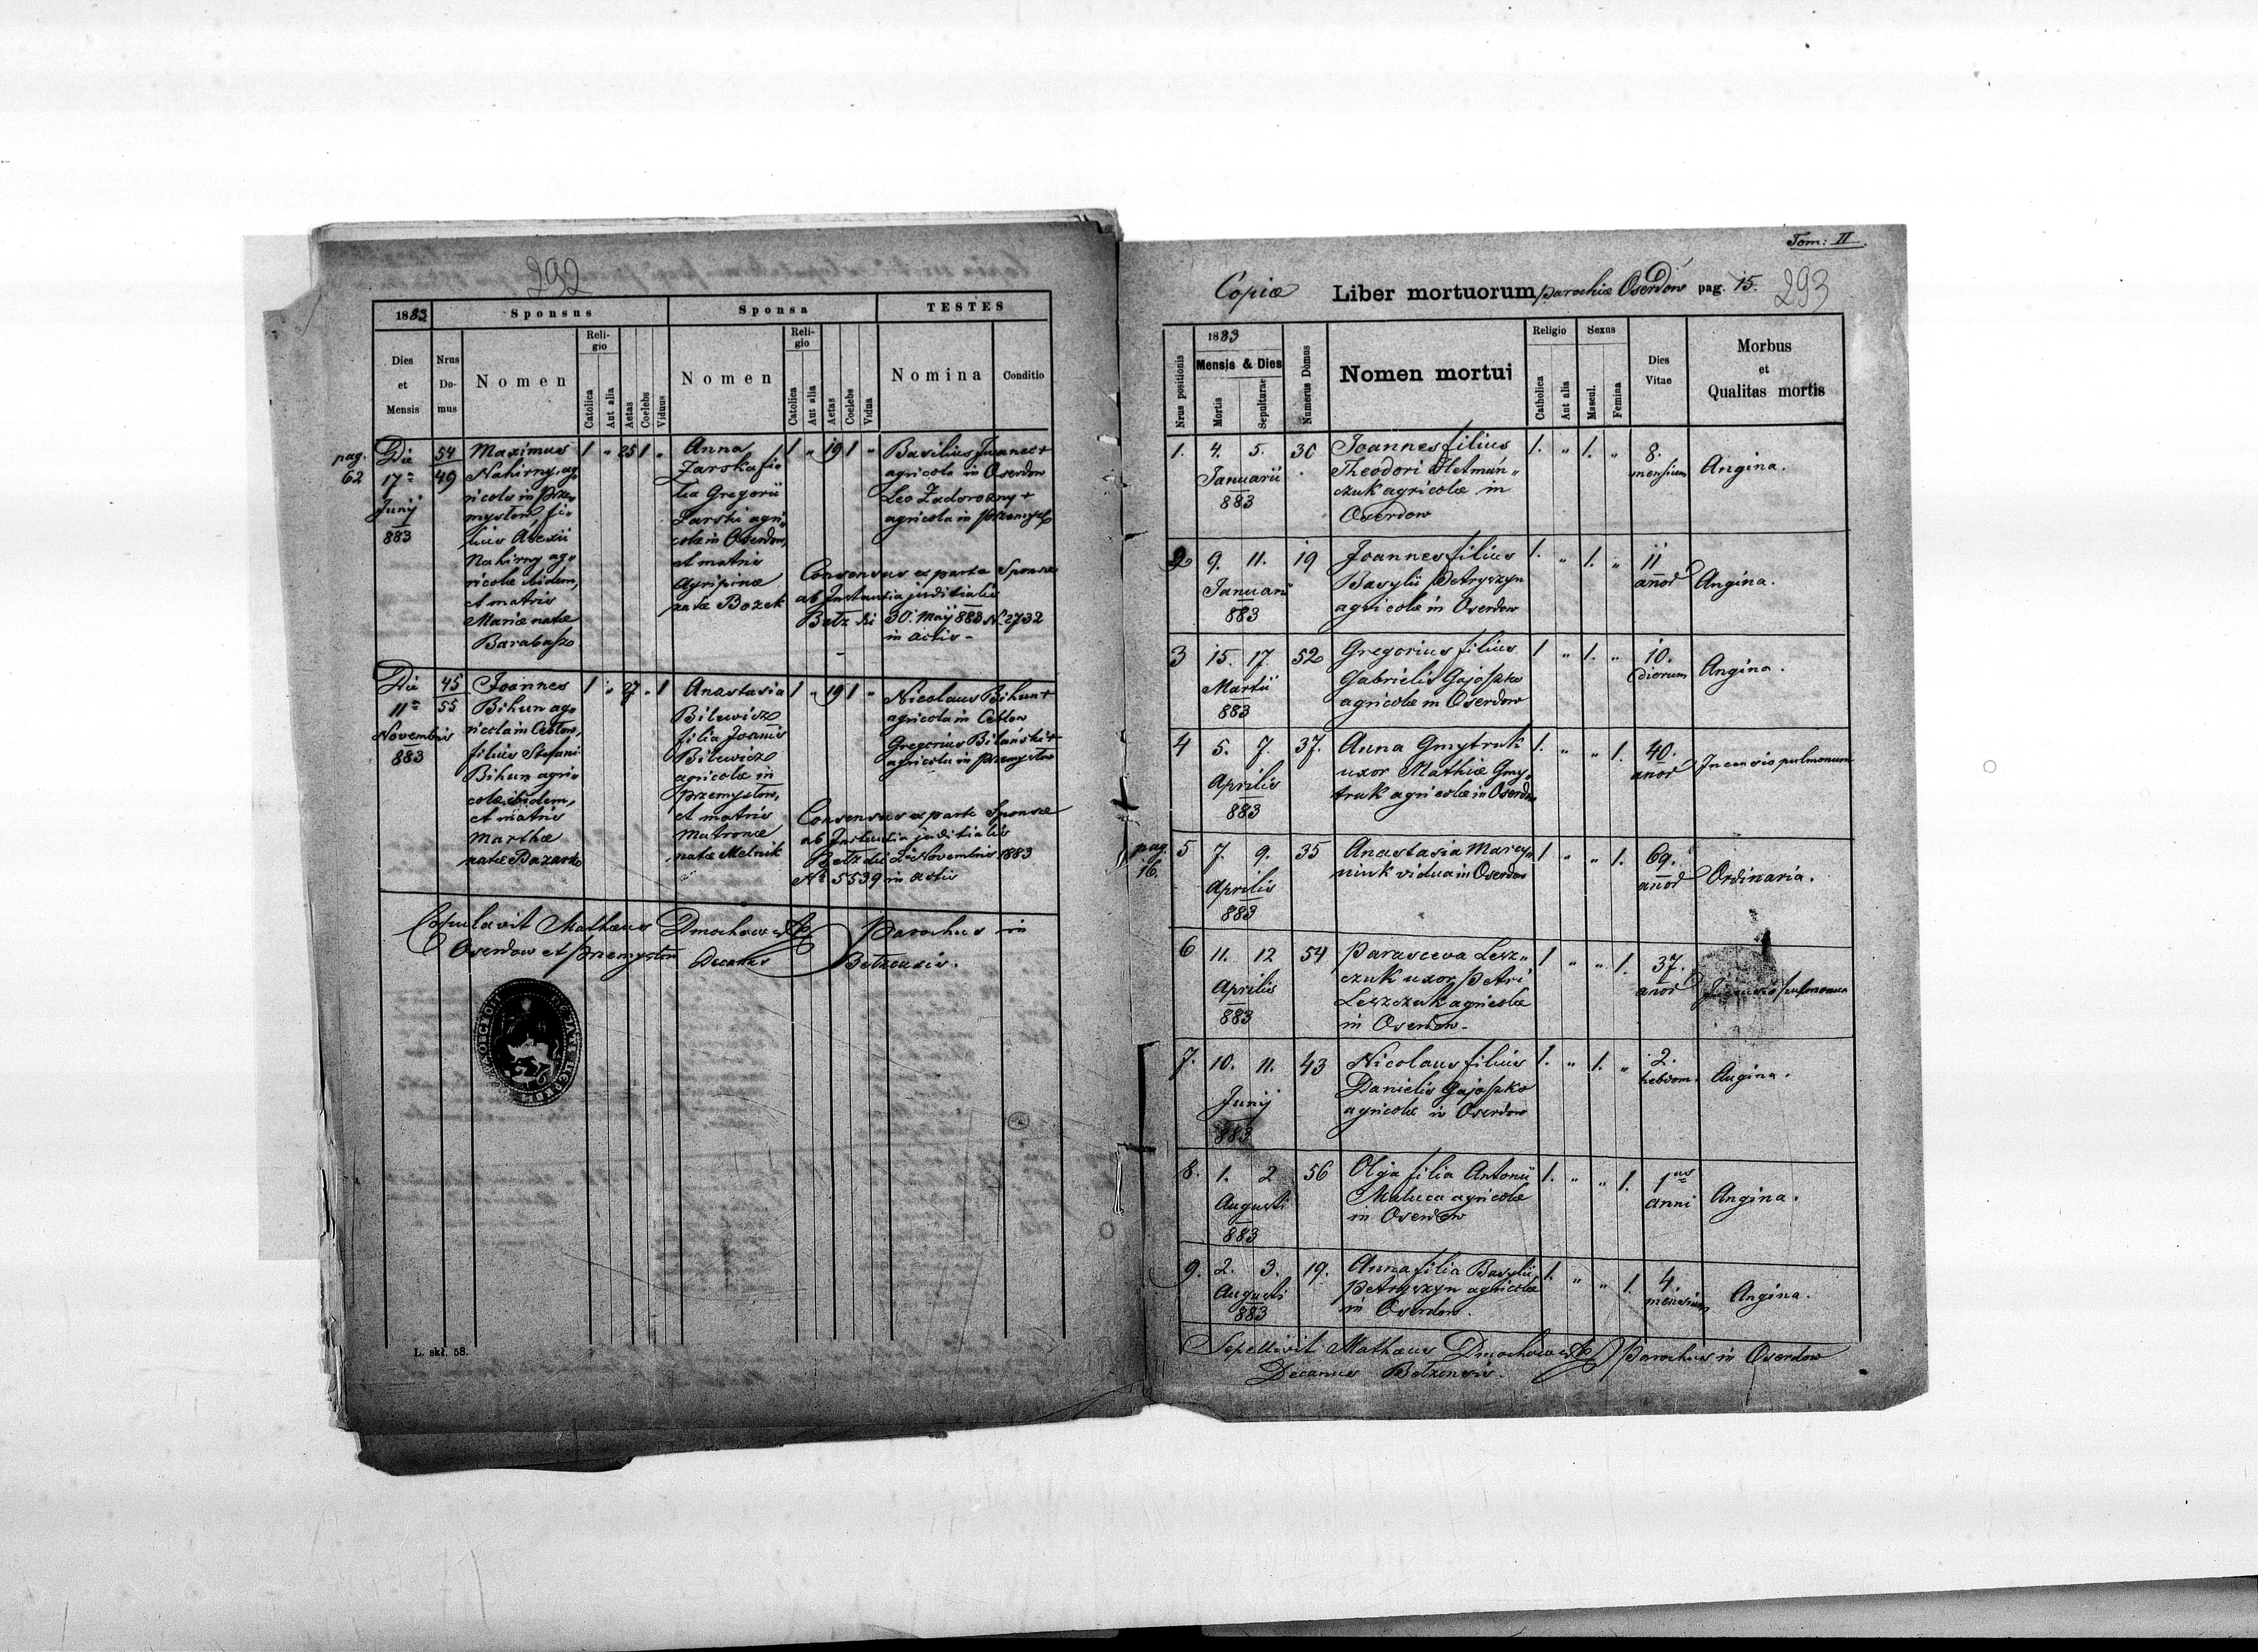 292
1883
Sponsus
Sponsa
TESTES
Dies et Mensis
Nrus Domus
Nomen
Religio
Catolica
Aut alia
Aetas
Coelebs
Viduus
Nomen
Religio
Catolica
Aut alia
Aetas
Coelebs
Vidua
Nomina
Conditio
pag. 62
Die 17ª Junij 883
54
49
Maximus
Nahirny, ag-
ricola in Prze-
mysłow, fi-
lius Alexii
Nahirny, ag-
ricolæ ibidem,
et matris
Mariæ natæ
1 " 25 1 "
Anna
Żarska fi-
lia Gregorii
Żarski agri-
colæ in Oserdow,
et matris
Agripinæ
natæ Bożek
1 " 19 1 "
Basilius Iwanec +
agricola in Oserdow
Leo Zadorozny +
agricola in Przemysł
Consensus ex parte Sponsæ
ab Instantia juditialis
Bełz dci 30. Maij 883 N. 2732
in actis -
Die 11ª Novembris 883
45
55
Joannes
Bihun ag-
ricola in Cebłow,
filius Stefani
Bihun agri-
colæ ibidem,
et matris
Marthæ
1 " 27 " 1
Anastasia
Bilewicz
filia Joanis
Bilewicz
agricolæ in
Przemysłow,
et matris
Matronæ
natæ Melnik
1 " 19 1 "
Nicolaus Bihun +
agricola in Cebłow
Gregorius Bilański +
agricola in Przemysłow
Consensus ex parte Sponsæ
ab Instantia juditialis
Bełz dci 2. Novembris 1883
Nº 5539 in actis
Copulavit Mathæus Dmochowski Parochus in
Oserdow et Przemysłow Decanus Bełzensis.
L. skł. 58.
Tom: II.
Copiæ Liber mortuorum parochiæ Oserdow pag. 15.
293
Nrus positionis
1883
Mensis & Dies
Mortis
Sepulturae
Numerus Domus
Nomen mortui
Religio
Catholica
Aut alia
Sexus
Mascul.
Femina
Dies Vitae
Morbus
et
Qualitas mortis
1. 4. 5. Januarii 883 30
Joannes filius
Theodori Hetmań-
czuk agricolæ in
Oserdow
1. " 1. " 8. mensium Angina.
2 9. 11. Januarii 883 19
Joannes filius
Basylii Petryszyn
agricolæ in Oserdow
1. " 1. " 11 anor Angina.
3 15. 17. Martii 883 52
Gregorius filius
Gabrielis Gajoszko
agricolæ in Oserdow
1 " 1. " 10. dierum Angina.
4 5. 7. Aprilis 883 37.
Anna Gmytruk
uxor Mathiæ Gmy-
truk agricolæ in Oserdow
1. " " 1. 40. anor Incensio pulmonum
pag. 16.
5 7. 9. Aprilis 883 35
Anastasia Marcy-
niuk vidua in Oserdow
1 " " 1. 69. anor Ordinaria.
6 11. 12 Aprilis 883 54
Parasceva Lesz-
czuk uxor Petri
Leszczuk agricolæ
in Oserdow -
1 " " 1. 37. anor Incensio pulmonum
7. 10. 11. Junij 883 43
Nicolaus filius
Danielis Gajoszko
agricolæ in Oserdow
1. " 1. " 2. hebdom. Angina.
8. 1. 2 Augusti 883 56
Olga filia Antonii
Maluca agricolæ
in Oserdow
1. " " 1. 1us anni Angina.
9. 2. 3. Augusti 883 19.
Anna filia Basylii
Petryszyn agricolæ
in Oserdow.
1. " " 1. 4. mensium Angina.
Sepellivit Mathæus Dmochowski Parochus in Oserdow
Decanus Bełzensis.